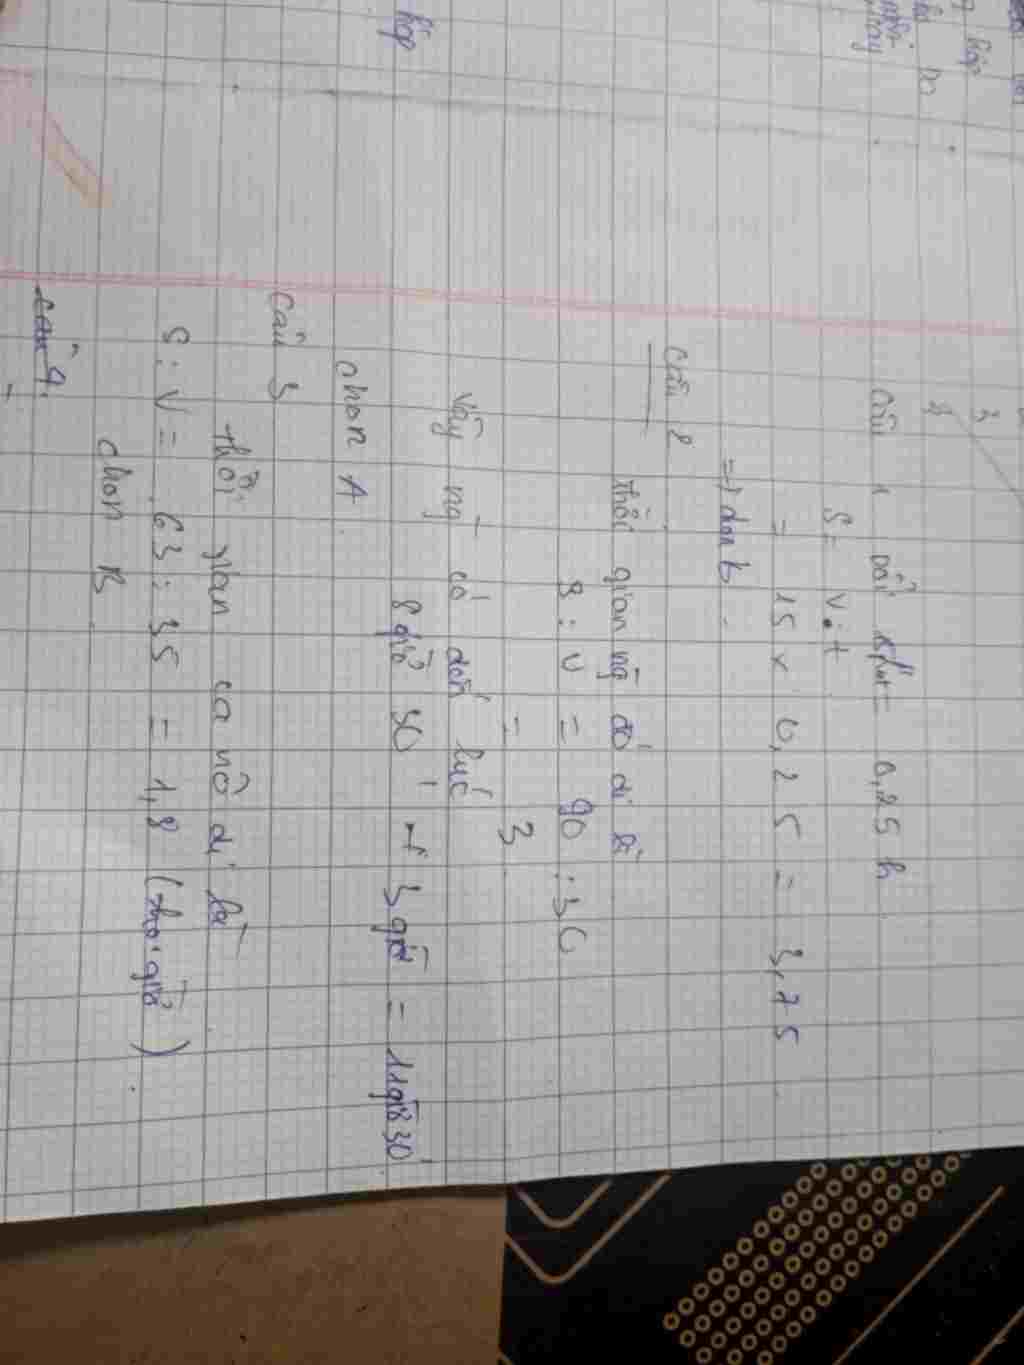 hộp
hộp
Câu 1 đổi 15 phút = 0,25 h
S = v.t
= 15 x 0,25 = 3,75
=> chọn b.
Câu 2
thời gian ng đó đi là
S : v = 90 : 30
= 3
Vậy ng có đến lúc
8 giờ 30' + 3 giờ = 11 giờ 30'
chọn A
Câu 3
thời gian ca nô đi là
S : V = 63 : 35 = 1,8 (giờ)
chọn B
Câu 4.